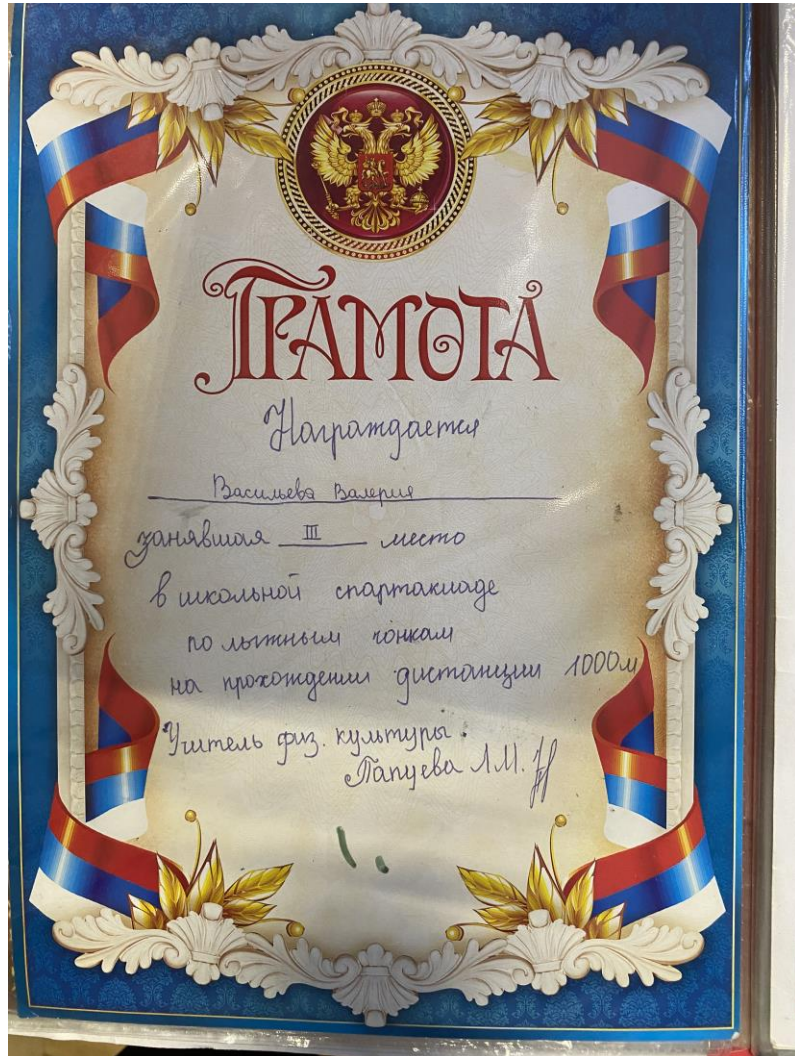 ГРАМОТА
Награждается
Васильева Валерия
занявшая III место
в школьной спартакиаде
по лыжным гонкам
на прохождении дистанции 1000м
Учитель физ. культуры
Папуева Л.М.